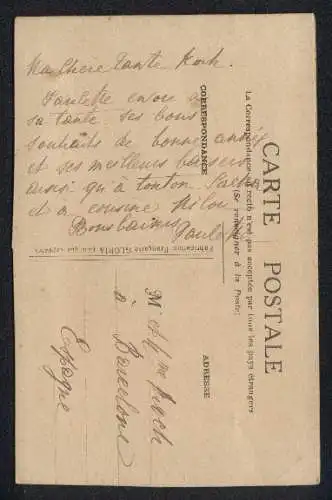 Ma chère tante
Paulette envoie à
sa tante ses bons
souhaits de bonne année
et ses meilleurs baisers
ainsi qu'à tonton
et à cousine
Bons baisers
Paulette
CARTE POSTALE
La Correspondance au recto n'est pas acceptée par tous les pays étrangers
(Se renseigner à la Poste)
CORRESPONDANCE
ADRESSE
Fabrication Française GLORIA
M et Mme
à Barcelone
Espagne